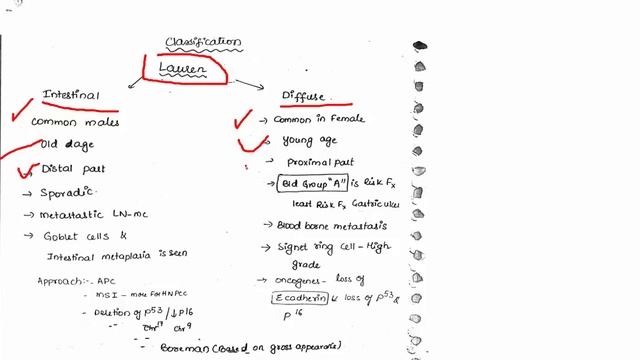 Classification
Lauren
Intestinal
Common males
Old dage
→ Distal part
→ Sporadic
→ metastastic LN-mc
→ Goblet cells &
Intestinal metaplasia is seen
Approach:- APC
- MSI - more For HNPCC
- Deletion of P53/↓P16
Chr17 Chr9
Diffuse
→ Common in Female
→ Young age
→ Proximal part
→ Bld Group "A" is Risk Fx
least Risk Fx Gastriculcer
→ Blood borne metastasis
→ Signet ring cell - High
grade
→ oncogenes - loss of
E cadherin & loss of P53 &
P16
- Boreman (Based on gross appearans)